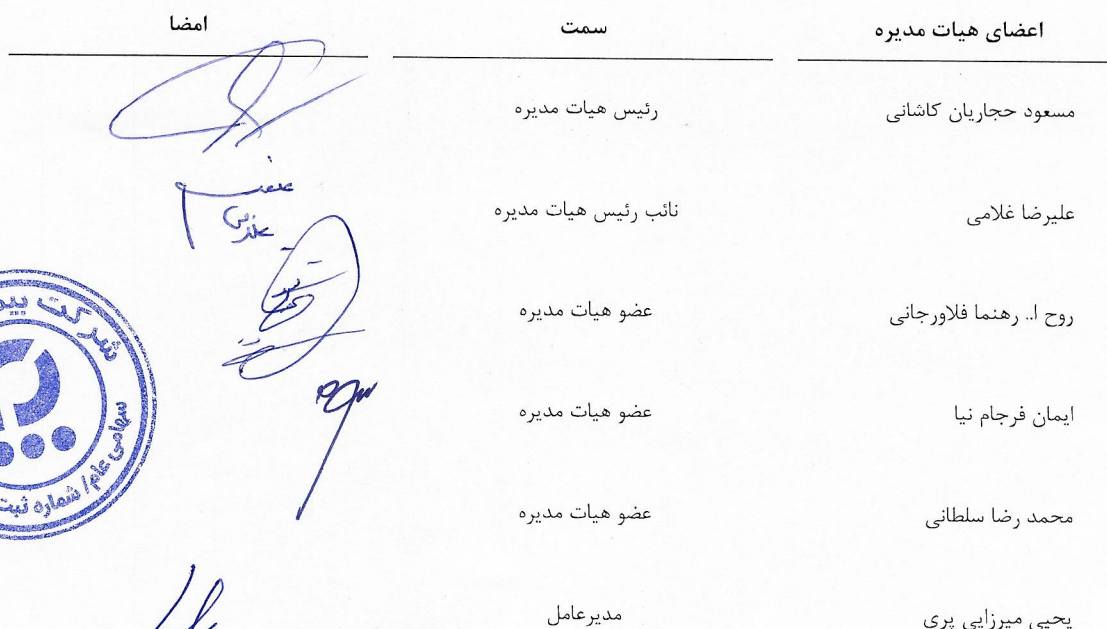 اعضای هیات مدیره سمت امضا
مسعود حجاریان کاشانی رئیس هیات مدیره
علیرضا غلامی نائب رئیس هیات مدیره
روح ا.. رهنما فلاورجانی عضو هیات مدیره
ایمان فرجام نیا عضو هیات مدیره
محمد رضا سلطانی عضو هیات مدیره
یحیی میرزایی پری مدیرعامل
شرکت
سهامی عام / شماره ثبت